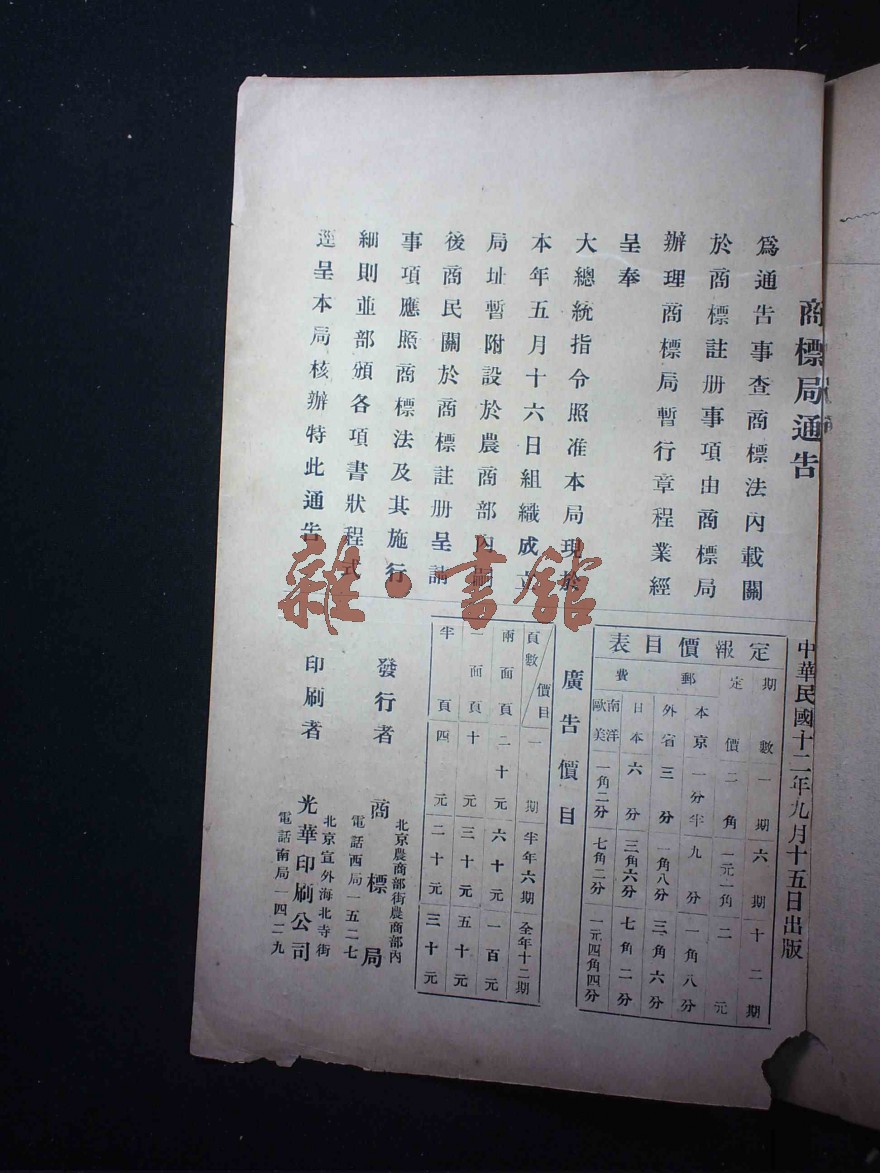 商標局通告
爲通告事查商標法內載關
於商標註册事項由商標局
辦理商標局暫行章程業經
呈奉
大總統指令照准本局現於
本年五月十六日組織成立
局址暫附設於農商部內嗣
後商民關於商標註册呈請
事項應照商標法及其施行
細則並部頒各項書狀程式
逕呈本局核辦特此通告
中華民國十二年九月十五日出版
定報價目表
期數 一期 六期 十二期
定價 二角 一元一角 二元
郵費
本京 一分半 九分 一角八分
外省 三分 一角八分 三角六分
日本 六分 三角六分 七角二分
南洋歐美 一角二分 七角二分 一元四角四分
廣告價目
頁數 價目 一期 半年六期 全年十二期
兩面頁 二十元 六十元 一百元
一面頁 十元 三十元 五十元
半頁 四元 二十元 三十元
發行者 商標局
北京農商部街農商部內
電話西局一五二七
印刷者 光華印刷公司
北京宣外海北寺街
電話南局一四二九
雜·書館